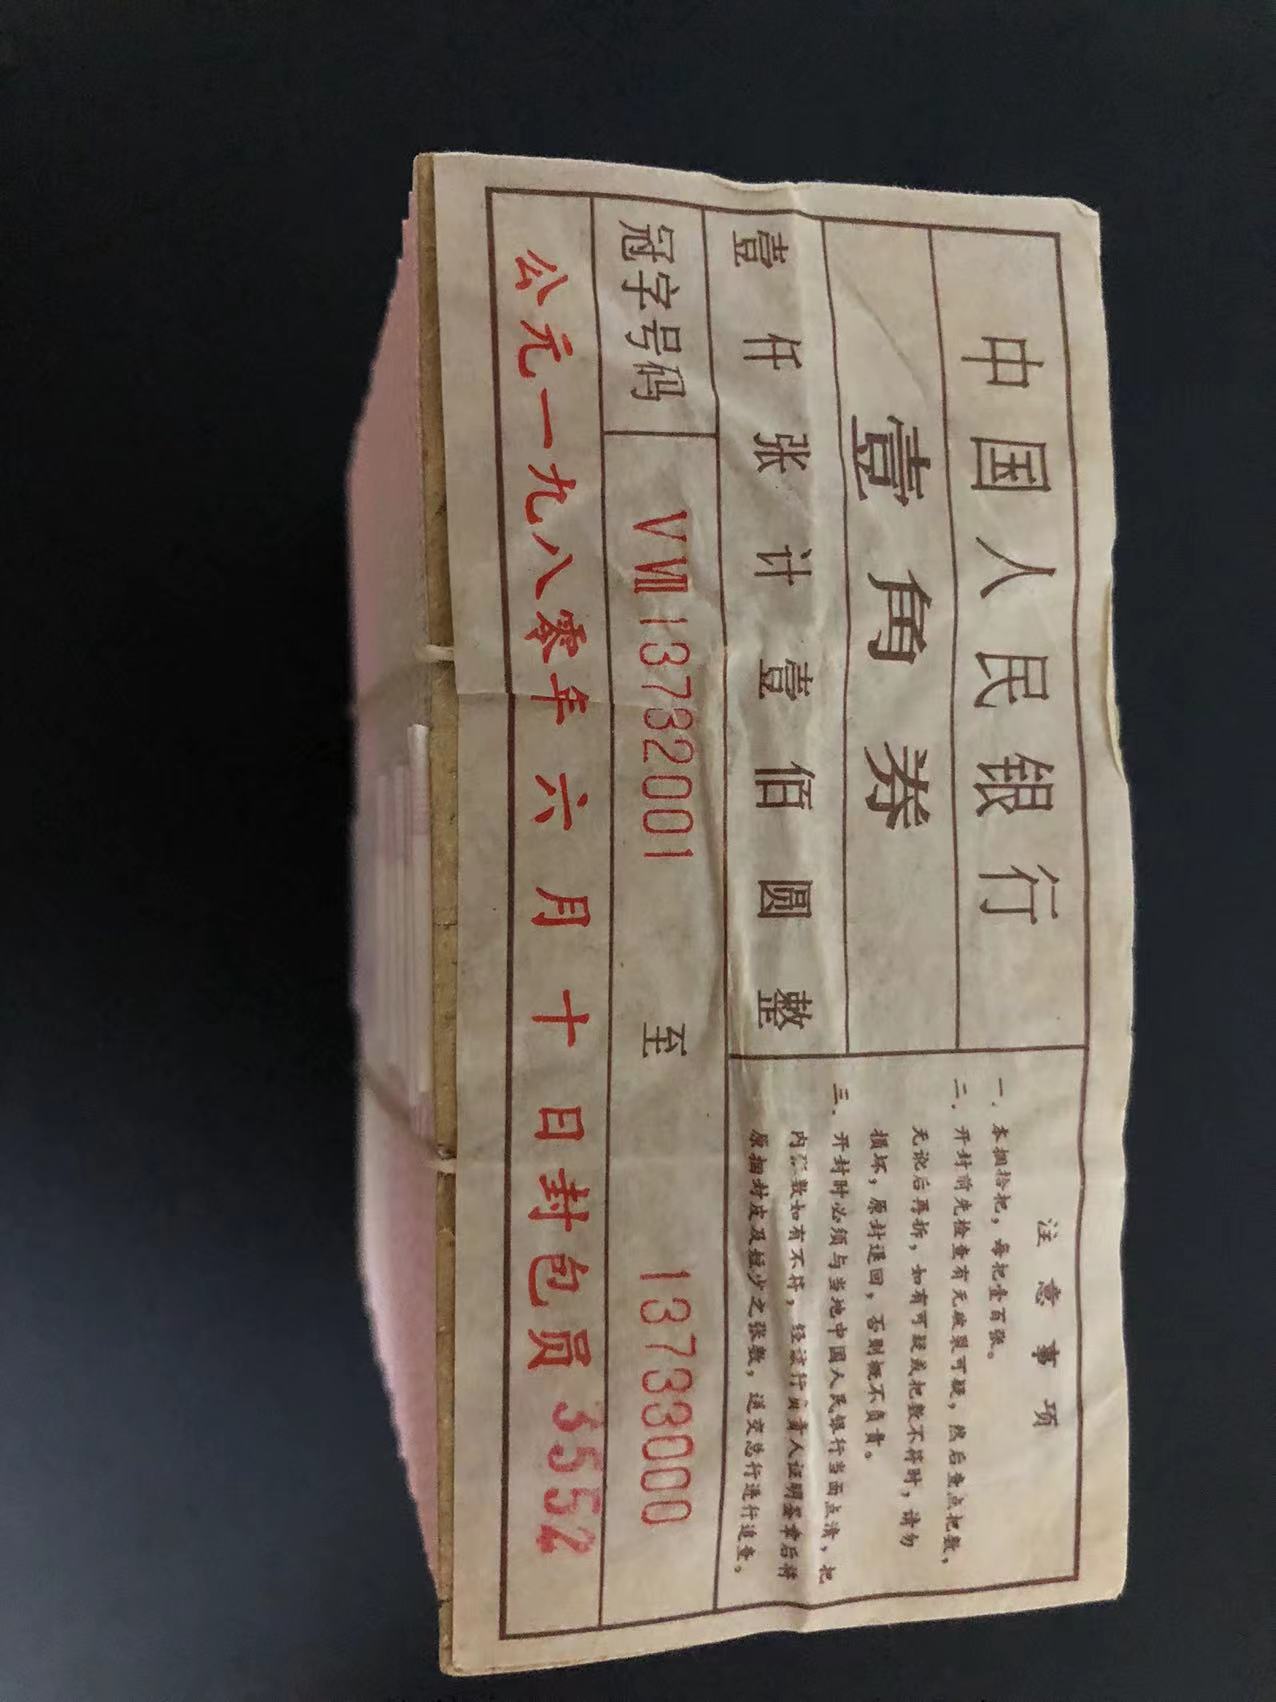 中国人民银行
壹角券
壹仟张计壹佰圆整
注意事项
一．本捆拾把，每把壹百张。
二．开封前先检查有无破裂可疑，然后查点把数，
无讹后再拆，如有可疑或把数不符时，请勿
损坏，原封退回，否则概不负责。
三．开封时必须与当地中国人民银行当面点清，把
内张数如有不符，经该行负责人证明签章后将
原捆封皮及短少之张数，送交总行进行追查。
冠字号码 VⅦ 13732001 至 13733000
公元一九八零年六月十日封包员 3552